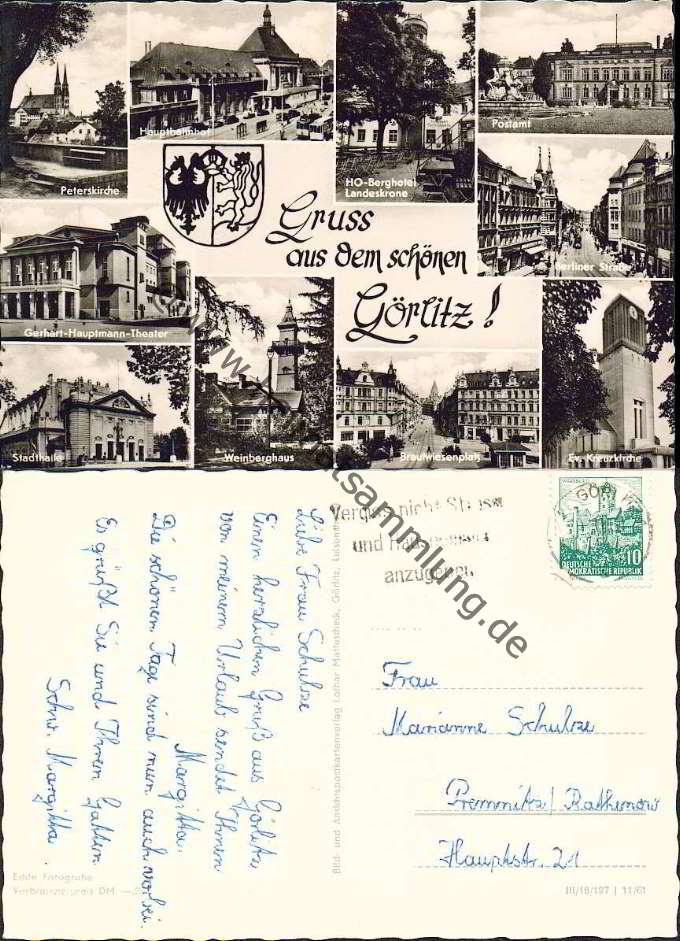 Peterskirche
Hauptbahnhof
HO-Berghotel
Landeskrone
Postamt
Gruss
aus dem schönen
Görlitz!
Berliner Straße
Gerhart-Hauptmann-Theater
Stadthalle
Weinberghaus
Brautwiesenplatz
Ev. Kreuzkirche
Liebe Frau Schulze
Einen herzlichen Gruß aus Görlitz
von meinem Urlaub sendet Ihnen
Margitta.
Die schönen Tage sind nun auch vorbei.
Es grüßt Sie und Ihren Gatten
Schw. Margitta.
Echte Fotografie
Verbraucherpreis DM
Bild- und Ansichtspostkartenverlag Lothar Mattuscheck, Görlitz,
Vergiß nicht Straße
und Hausnummer
anzugeben
GÖRLITZ
WARTBURG
10
DEUTSCHE
DEMOKRATISCHE REPUBLIK
Frau
Marianne Schulze
Premnitz/Rathenow
Hauptstr. 21
III/18/197 | 11/61